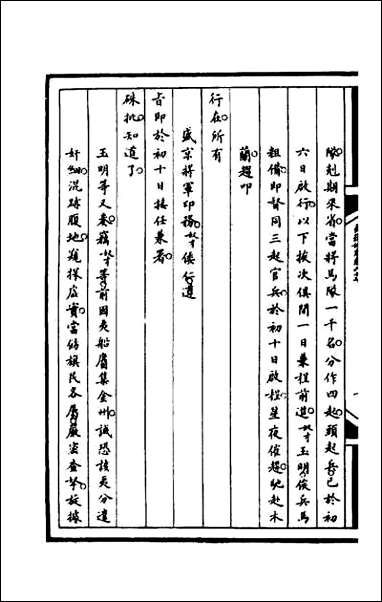 隊剋期來省當將馬隊一千名分作四起頭起兵已於初
六日啟行以下挨次俱間一日兼程前進奴才玉明俟兵馬
粗備即督同三起官兵於初十日啟程星夜催趲馳赴木
蘭趨叩
行在所有
盛京將軍印務奴才倭仁遵
旨即於初十日接任兼署
硃批知道了
玉明等又奏竊奴才等前因夷船麕集金州誠恐該夷分遣
奸細混跡腹地窺探虛實當飭旗民各屬嚴密查拏旋據